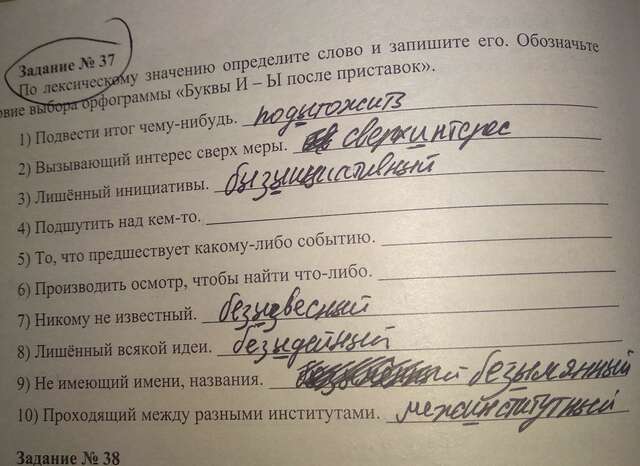 Задание № 37
По лексическому значению определите слово и запишите его. Обозначьте
овие выбора орфограммы «Буквы И – Ы после приставок».
1) Подвести итог чему-нибудь. подытожить
2) Вызывающий интерес сверх меры. сверхинтерес
3) Лишённый инициативы. бызыициативный
4) Подшутить над кем-то.
5) То, что предшествует какому-либо событию.
6) Производить осмотр, чтобы найти что-либо.
7) Никому не известный. безызвесный
8) Лишённый всякой идеи. безыдейный
9) Не имеющий имени, названия. безымянный
10) Проходящий между разными институтами. межинститутный
Задание № 38